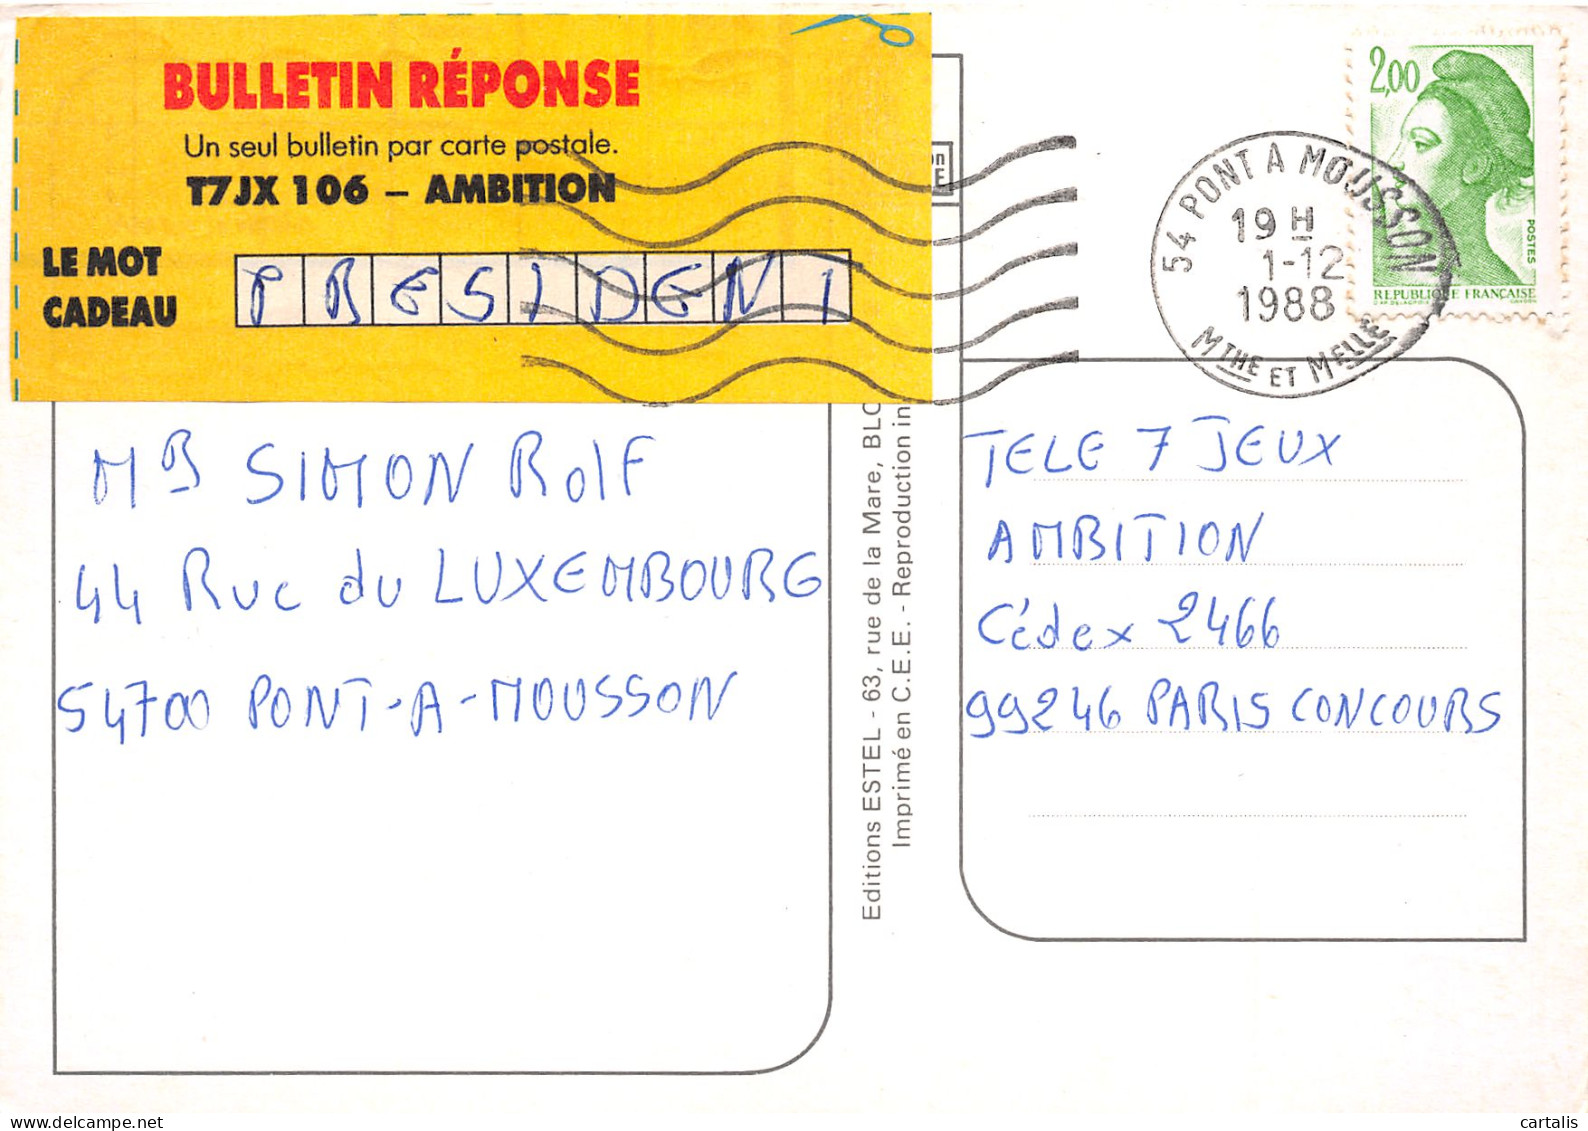 BULLETIN RÉPONSE
Un seul bulletin par carte postale.
T7JX 106 – AMBITION
LE MOT
CADEAU
PRESIDENT
2,00
POSTES
REPUBLIQUE FRANÇAISE
54 PONT A MOUSSON
19 H
1-12
1988
MTHE ET MELLE
MR SIMON Rolf
44 Rue du LUXEMBOURG
54700 PONT-A-MOUSSON
Editions ESTEL - 63, rue de la Mare, BLO
Imprimé en C.E.E. - Reproduction in
TELE 7 JEUX
AMBITION
Cédex 2466
99246 PARIS CONCOURS
cartalis